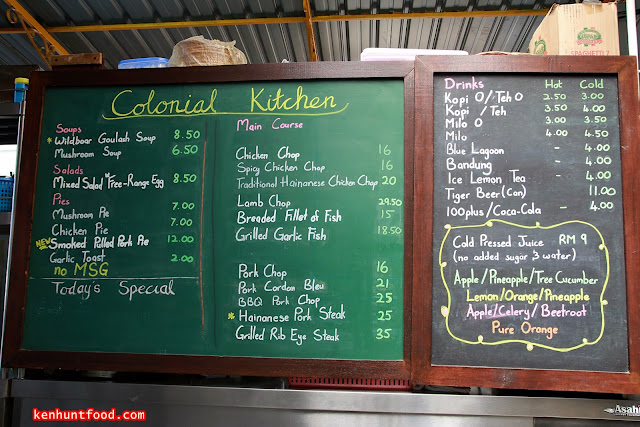 Colonial Kitchen
Soups
* Wildboar Goulash Soup 8.50
Mushroom Soup 6.50
Salads
Mixed Salad w Free-Range Egg 8.50
Pies
Mushroom Pie 7.00
Chicken Pie 7.00
NEW Smoked Pulled Pork Pie 12.00
Garlic Toast 2.00
no MSG
Today's Special
Main Course
Chicken Chop 16
Spicy Chicken Chop 16
Traditional Hainanese Chicken Chop 20
Lamb Chop 29.50
Breaded Fillet of Fish 15
Grilled Garlic Fish 18.50
Pork Chop 16
Pork Cordon Bleu 21
BBQ Pork Chop 25
* Hainanese Pork Steak 25
Grilled Rib Eye Steak 35
Drinks Hot Cold
Kopi O/Teh O 2.50 3.00
Kopi / Teh 3.50 4.00
Milo O 3.00 3.50
Milo 4.00 4.50
Blue Lagoon - 4.00
Bandung - 4.00
Ice Lemon Tea - 4.00
Tiger Beer (Can) 11.00
100plus/Coca-Cola - 4.00
Cold Pressed Juice RM 9
(no added sugar & water)
Apple/Pineapple/Tree Cucumber
Lemon/Orange/Pineapple
Apple/Celery/Beetroot
Pure Orange
SPAGHETTI
Asahi
kenhuntfood.com